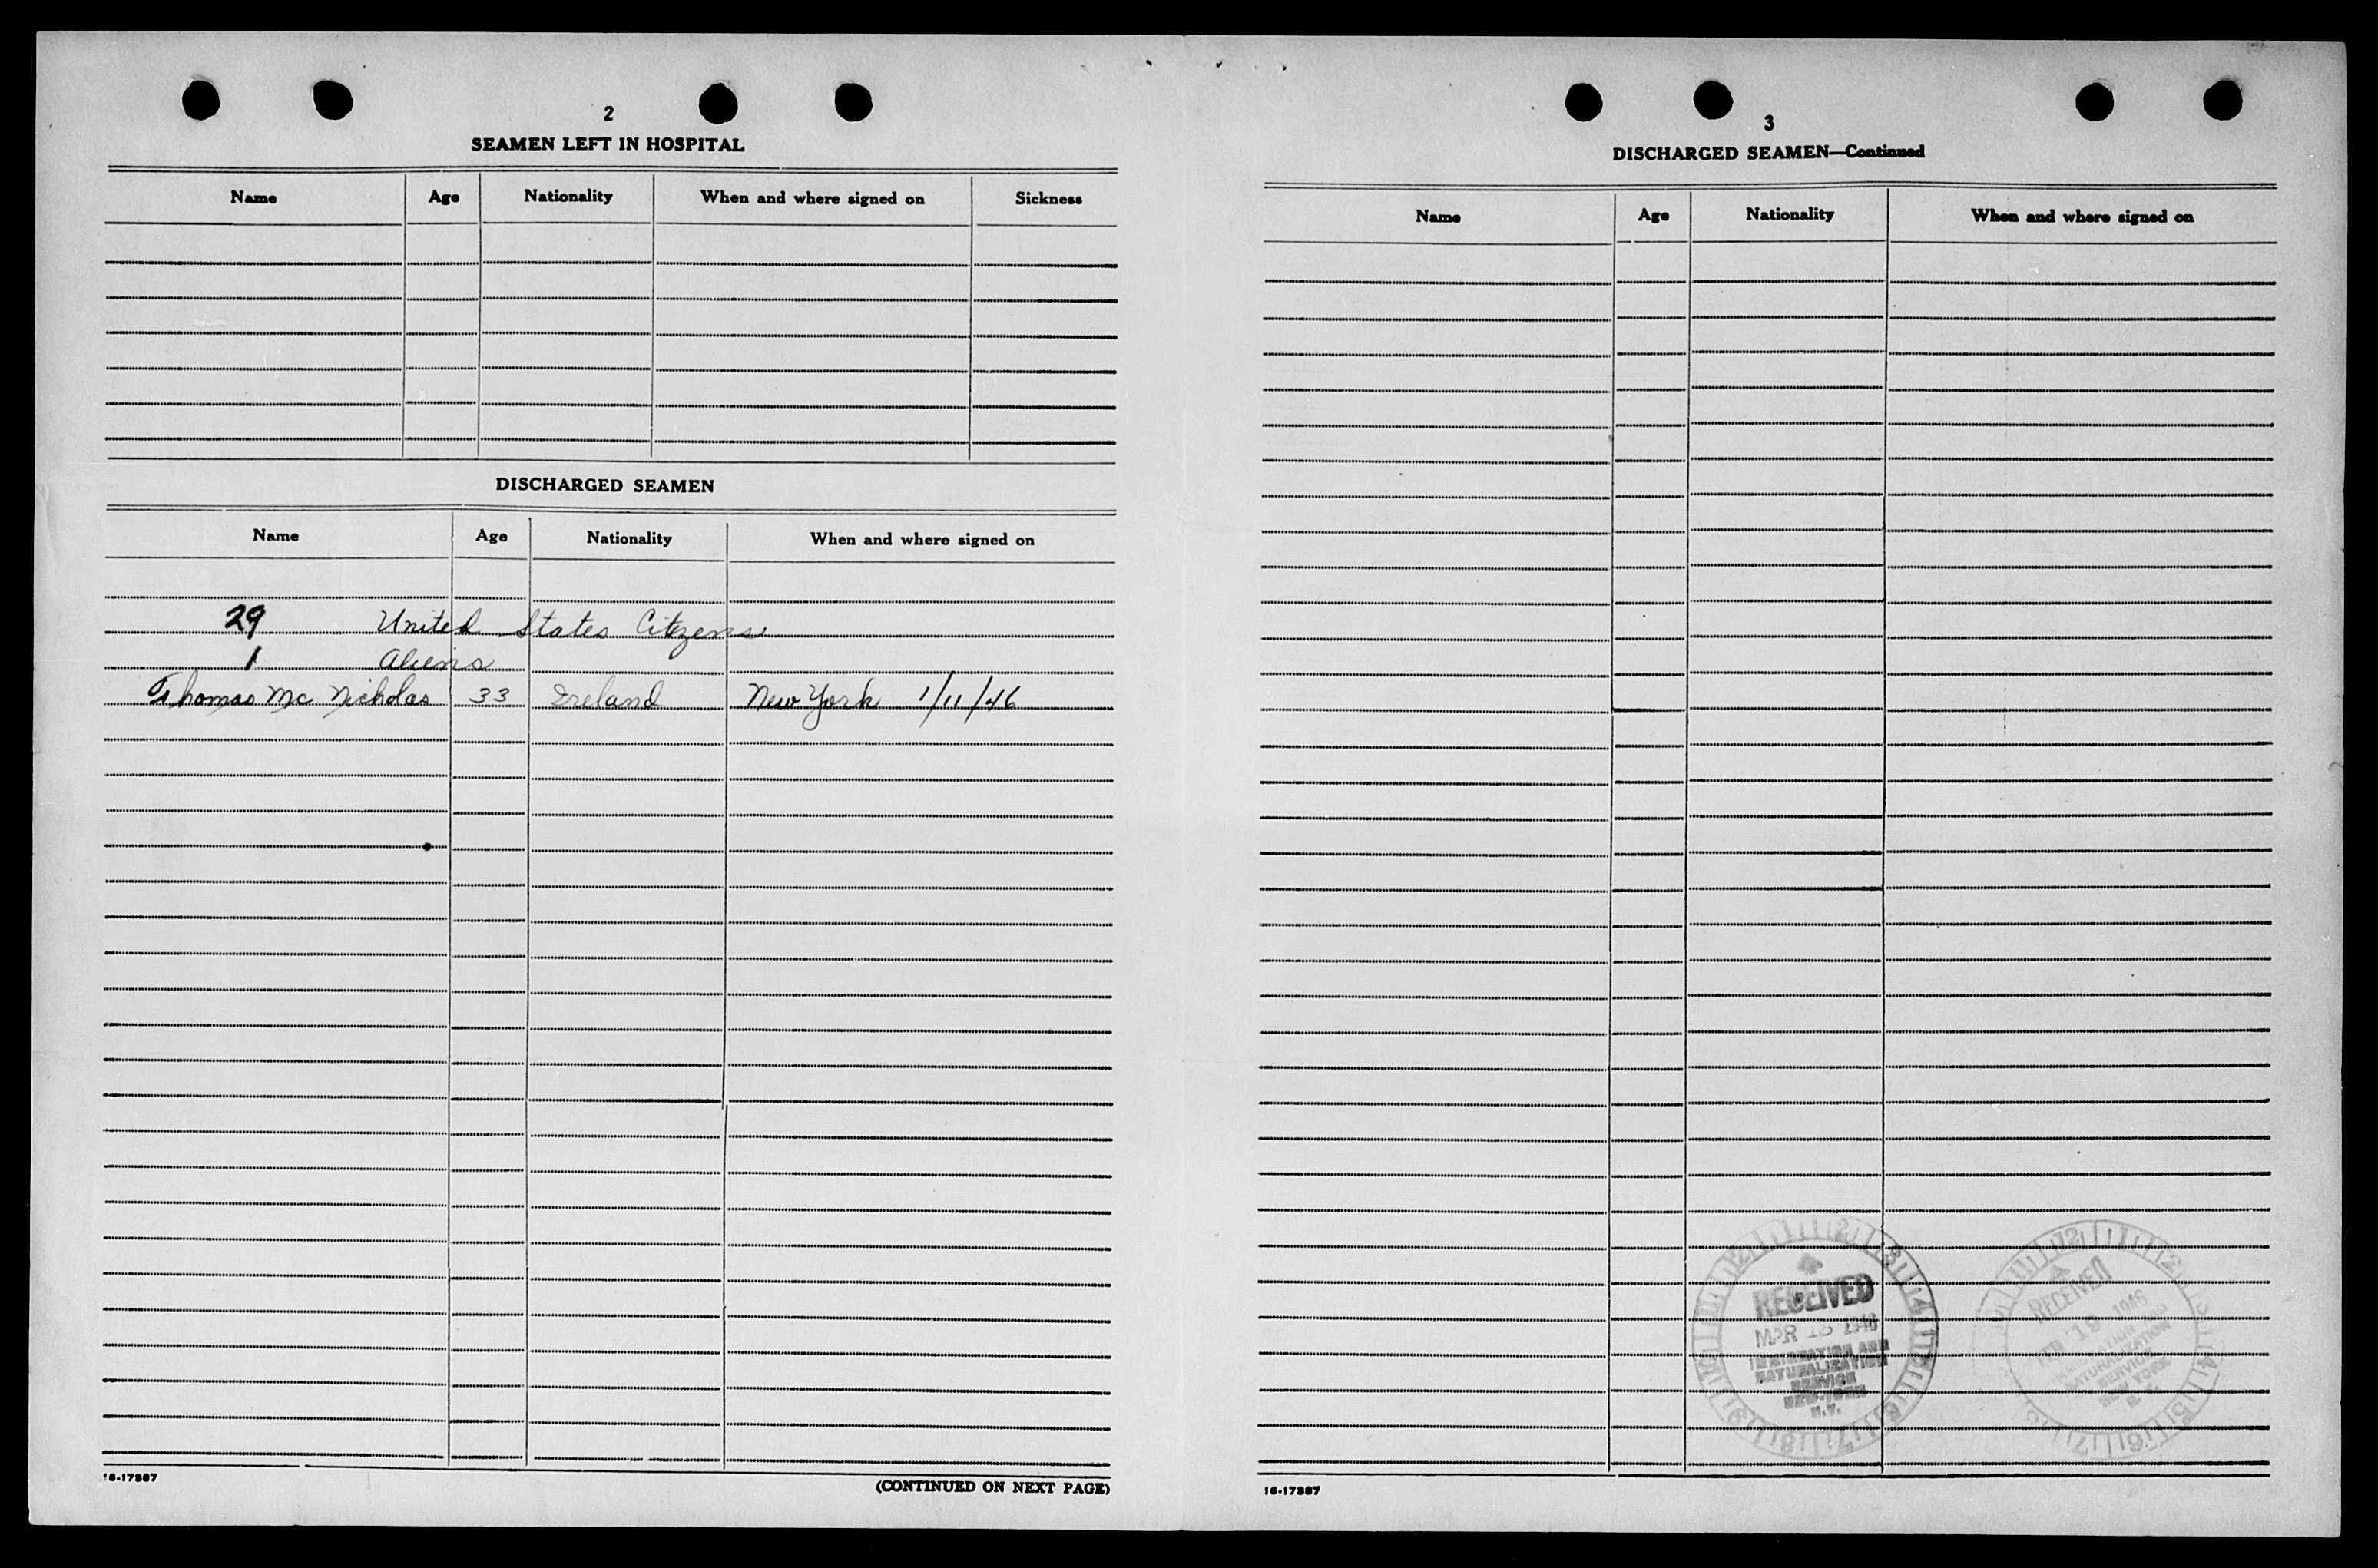 2
SEAMEN LEFT IN HOSPITAL
Name Age Nationality When and where signed on Sickness
DISCHARGED SEAMEN
Name Age Nationality When and where signed on
29 United States Citizens
1 Aliens
Thomas Mc Nicholas 33 Ireland New York 1/11/46
16-17387
(CONTINUED ON NEXT PAGE)
3
DISCHARGED SEAMEN—Continued
Name Age Nationality When and where signed on
RECEIVED
MAR 1946
IMMIGRATION AND
NATURALIZATION
SERVICE
NEW YORK
N.Y.
RECEIVED
FEB 19 1946
IMMIGRATION AND
NATURALIZATION
SERVICE
NEW YORK
N.Y.
16-17387